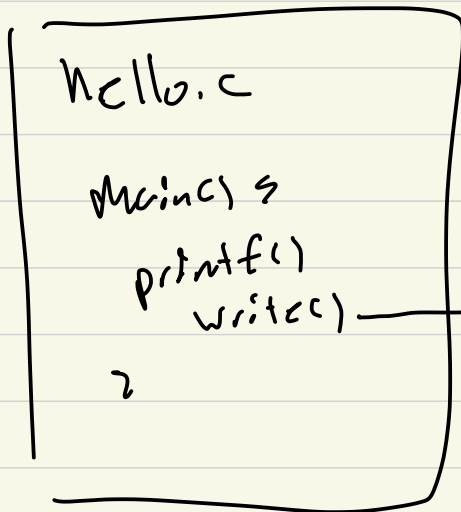 hello.c
main() {
printf()
write()
}